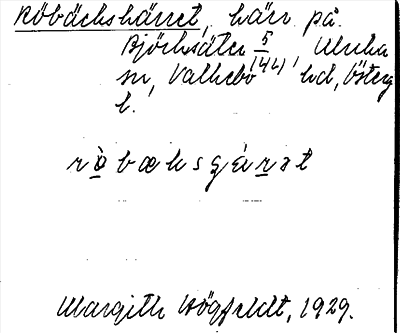 Röbäckskärret, kärr på
Björksäter 5/1 (44), Ulrika
sn, Valkebo hd, Österg
l.
rö̀bæksçæ̀rət
Margith Högfeldt, 1929.